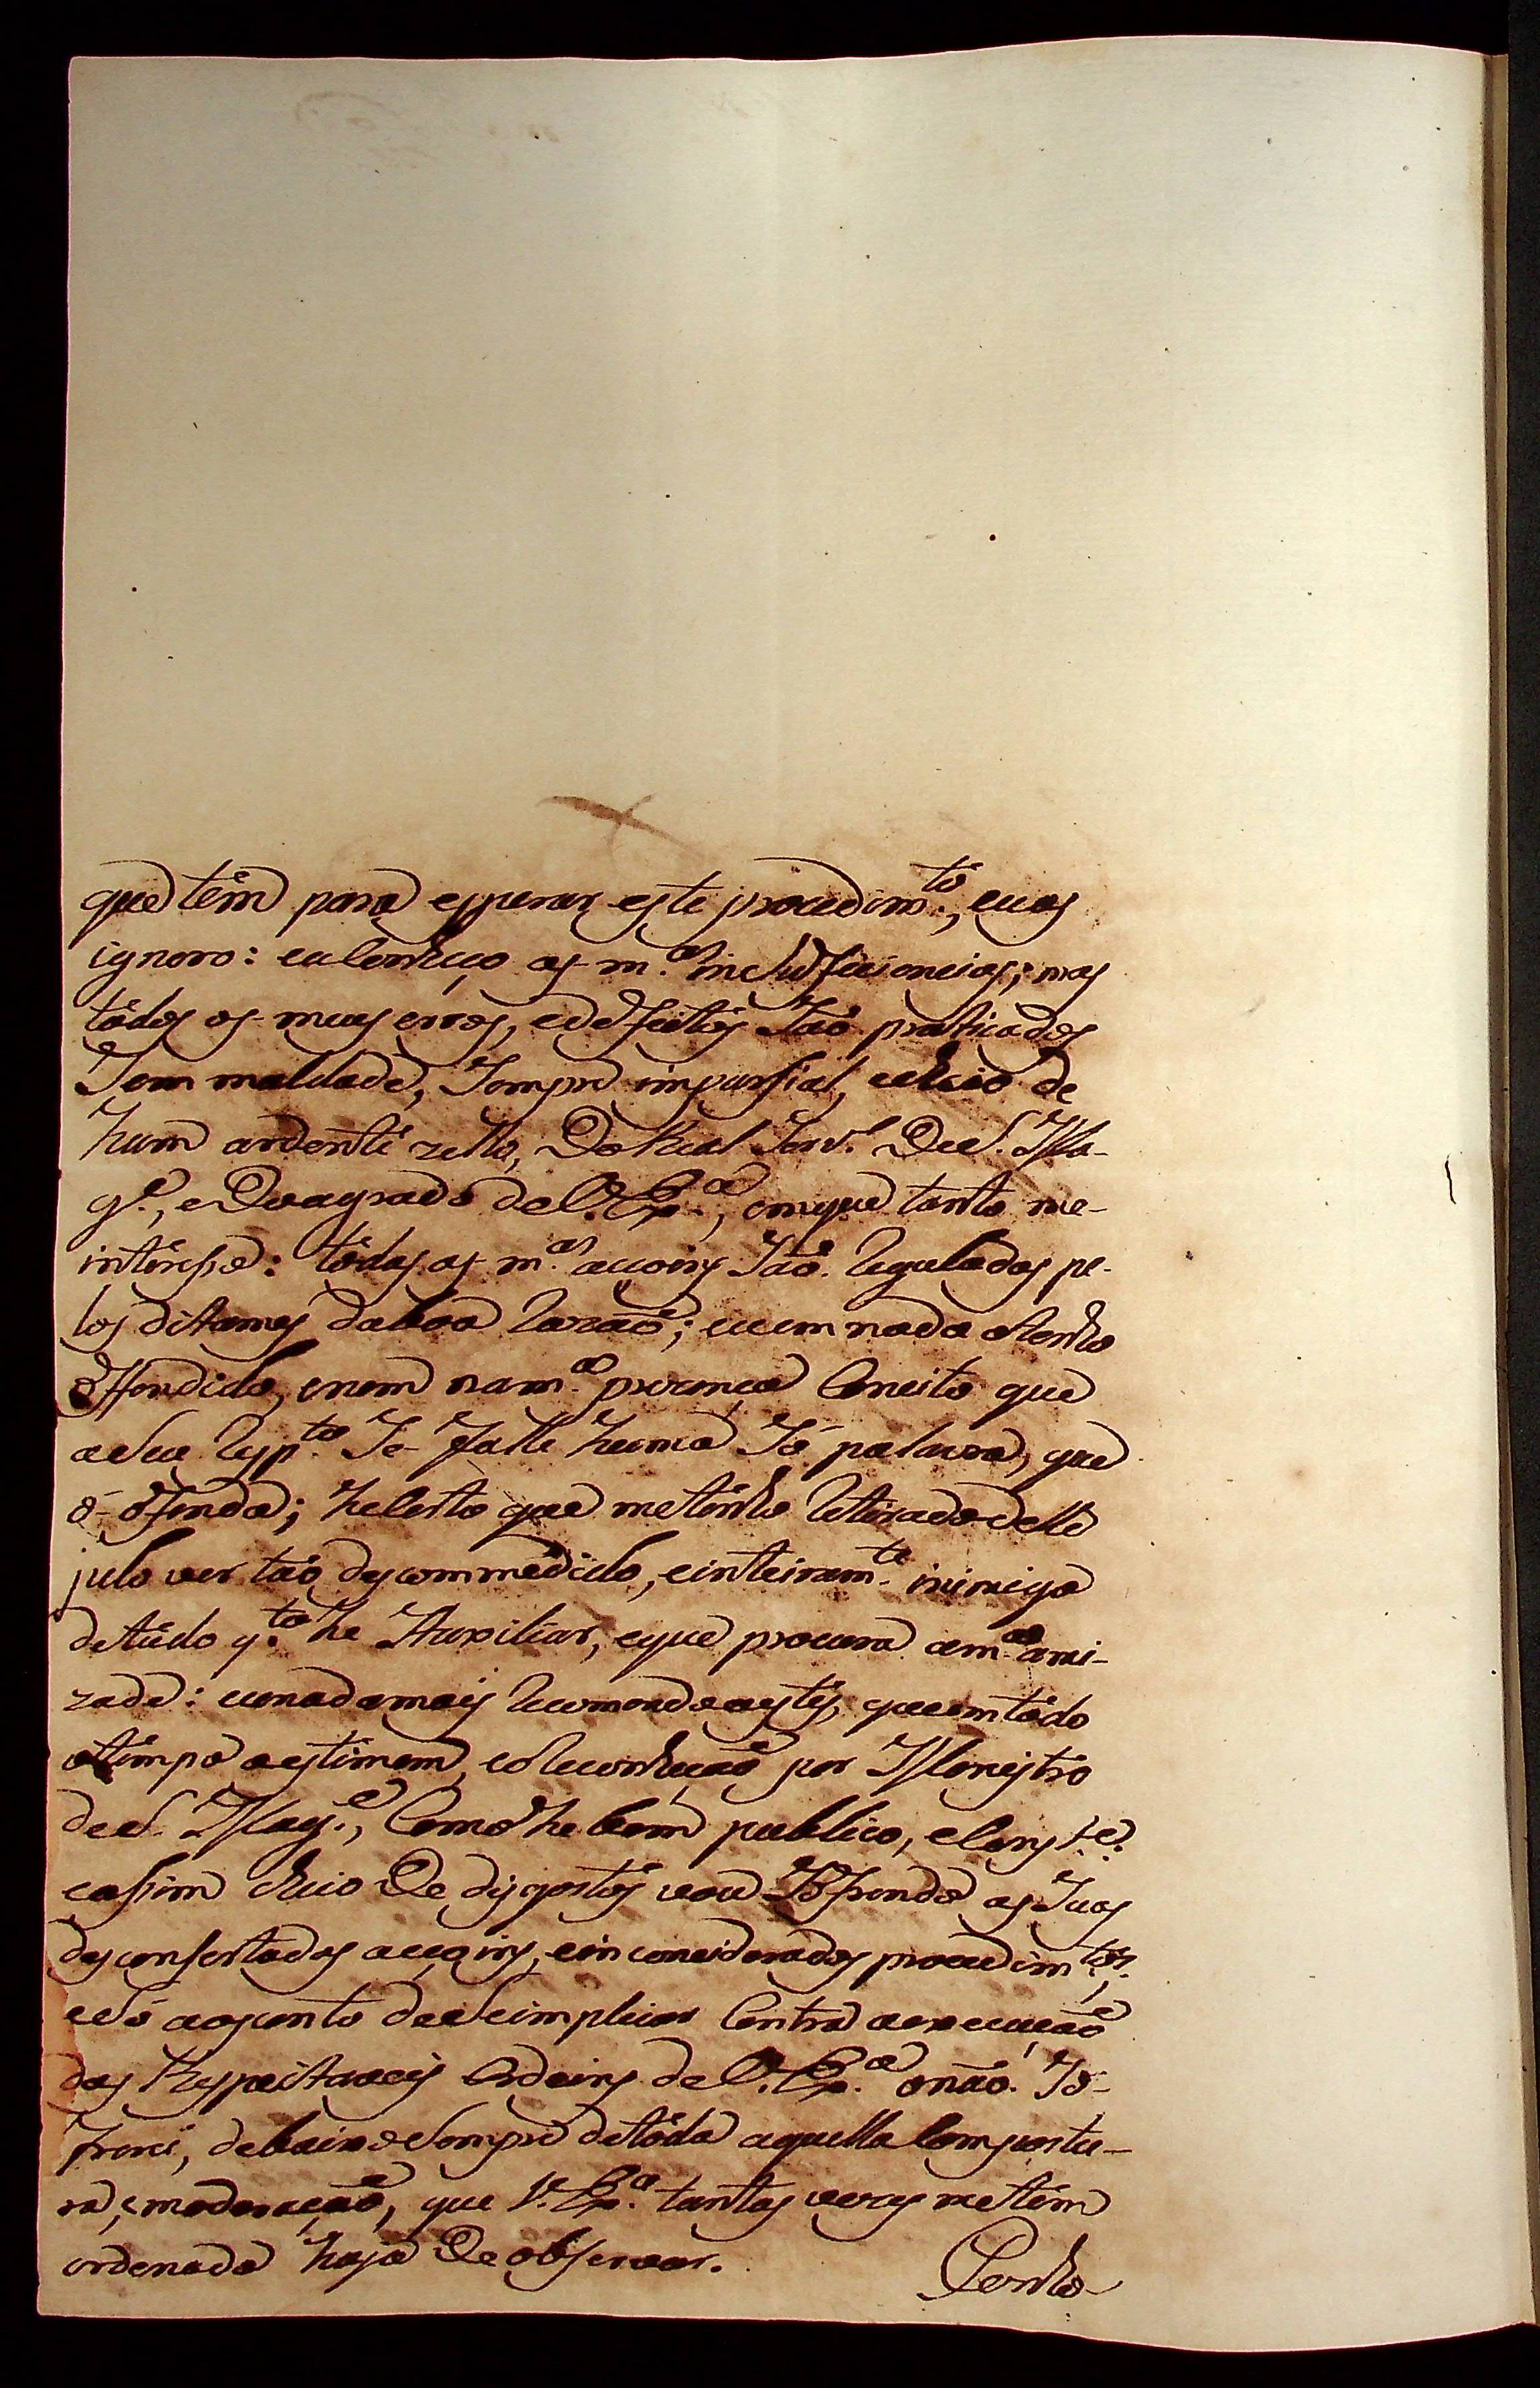 que têm para esperar este procedim.to, eu as
ignoro: eu conheço as m.as insuficiencias; mas
tôdos os meus erros, e defeitos São praticados
Sem maldade, Sempre imparsial, e cheio de
hum ardente zello, Do Real Serv.o De S. Ma-
g.e, e Do agrado de V. Ex.a, em que tanto me-
interessa: tôdas as m.as accoins São Reguladas pe-
los ditames da boa Razaõ; eu em nada o tenho
offendido, e nem na m.a prezença Conçinto que
a Seu Resp.to Se falle huma Só palavra, que
o-ofenda; he Certo que me tenho Retirado delle
pulo ver taõ descommedido, e inteiram.te inimigo
de tudo q.to he Auxiliar, e que procura a m.a ami-
zade: eu nada mais Recomendo a estes, que em tôdo
o tempo a estimem, e o Reconheçaõ por Menistro
de S. Mag.e, Como he bem publico, e Const.e:
e assim cheio De disgostos vou Sofrendo as Suas
desconsertadas accoins, e inconsiderados procedim.tos;
e Só ao ponto de Se implicar Contra a execuçaõ
das Respeitaveis Ordeins de V. Ex.a o naõ So-
frerei, debaixo Sempre de tôda aquella Compostu-
ra, e moderaçaõ, que V. Ex.a tantas vezes me tem
ordenado haja De observar.
Tenho